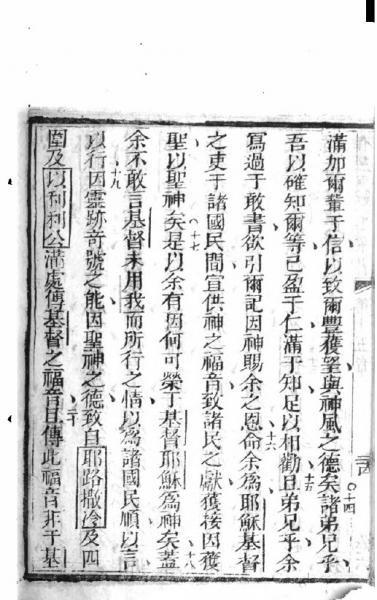 滿加爾輩于信以致爾豐獲望與神風之德矣諸弟兄乎十四
吾以確知爾等已盈于仁滿于知足以相勸且弟兄乎余十五
寫過于敢書欲引爾記因神賜余之恩命余爲耶穌基督十六
之吏于諸國民間宣供神之福音致諸民之獻獲接因獲
聖以聖神矣是以余有因何可榮于基督耶穌爲神矣蓋十七十八
余不敢言基督未用我而所行之情以爲諸國民順以言
以行因靈跡奇號之能因聖神之德致自耶路撒冷及四十九
圍及以利利公滿處傳基督之福音且傳此福音非于基二十